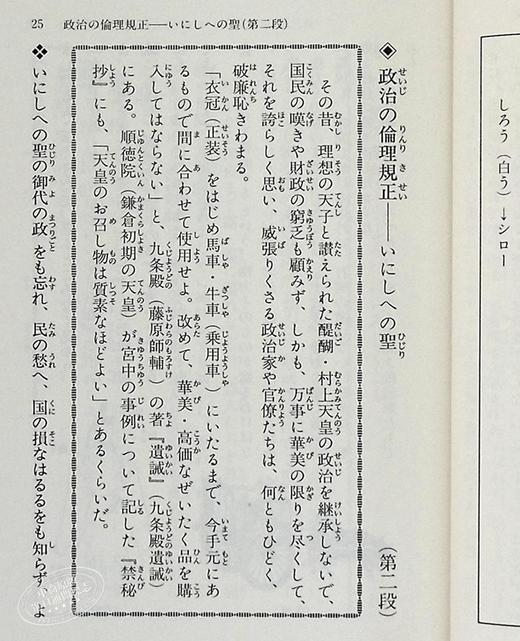 25　政治の倫理規正──いにしへの聖(第二段)
しろう（白う）→シロー
◈政治の倫理規正──いにしへの聖　（第二段）
その昔、理想の天子と讃えられた醍醐・村上天皇の政治を継承しないで、
国民の嘆きや財政の窮乏も顧みず、しかも、万事に華美の限りを尽くして、
それを誇らしく思い、威張りくさる政治家や官僚たちは、何ともひどく、
破廉恥きわまる。
「衣冠（正装）をはじめ馬車・牛車（乗用車）にいたるまで、今手元にあ
るもので間に合わせて使用せよ。改めて、華美・高価なぜいたく品を購
入してはならない」と、九条殿（藤原師輔）の著『遺誡』（九条殿遺誡）
にある。順徳院（鎌倉初期の天皇）が宮中の事例について記した『禁秘
抄』にも、「天皇のお召し物は質素なほどよい」とあるくらいだ。
❖いにしへの聖の御代の政をも忘れ、民の愁へ、国の損なはるるをも知らず、よ